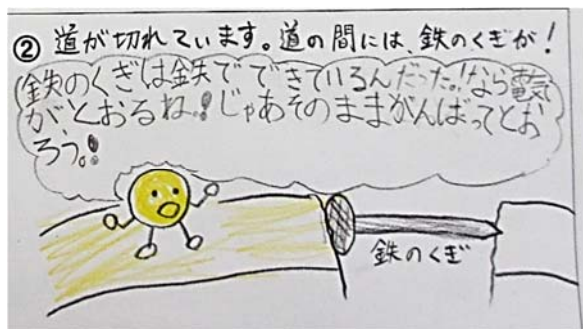 ② 道が切れています。道の間には、鉄のくぎが!
鉄のくぎは金鉄でできているんだった!なら電気
がとおるね!じゃあそのままがんばってとお
ろう!
鉄のくぎ